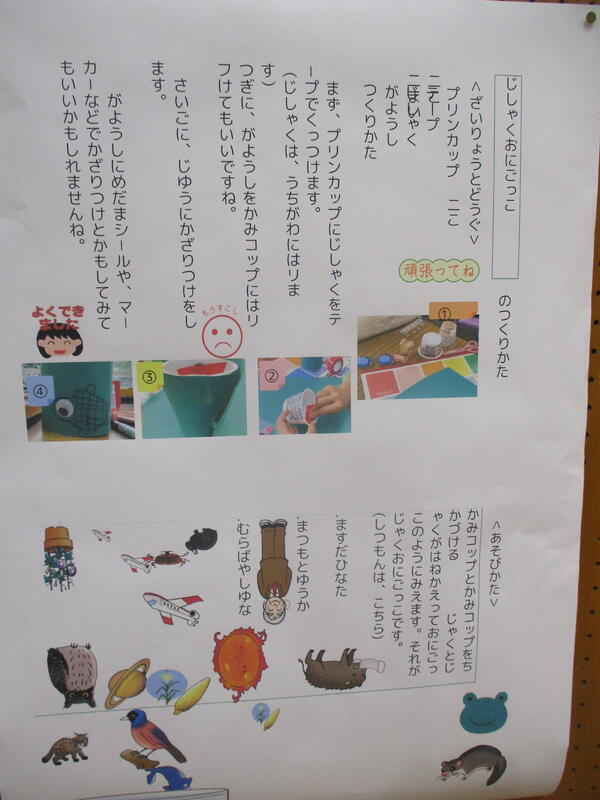 じしゃくおにごっこ
のつくりかた
<ざいりょうとどうぐ>
プリンカップ　二こ
テープ
じしゃく
がようし
つくりかた
頑張ってね
まず、プリンカップにじしゃくをテ
ープでくっつけます。
(じしゃくは、うちがわにはりま
す)
つぎに、がようしをかみコップにはり
つけてもいいですね。
さいごに、じゆうにかざりつけをし
ます。
がようしにめだまシールや、マー
カーなどでかざりつけとかもしてみて
もいいかもしれませんね。
①
②
もうすこし
③
よくでき
ました
④
<あそびかた>
かみコップとかみコップをち
かづける　　じゃくとじ
ゃくがはねかえっておにごっ
このようにみえます。それが
じゃくおにごっこです。
(しつもんは、こちら)
ますだひなた
まつもとゆうか
むらばやしゆな